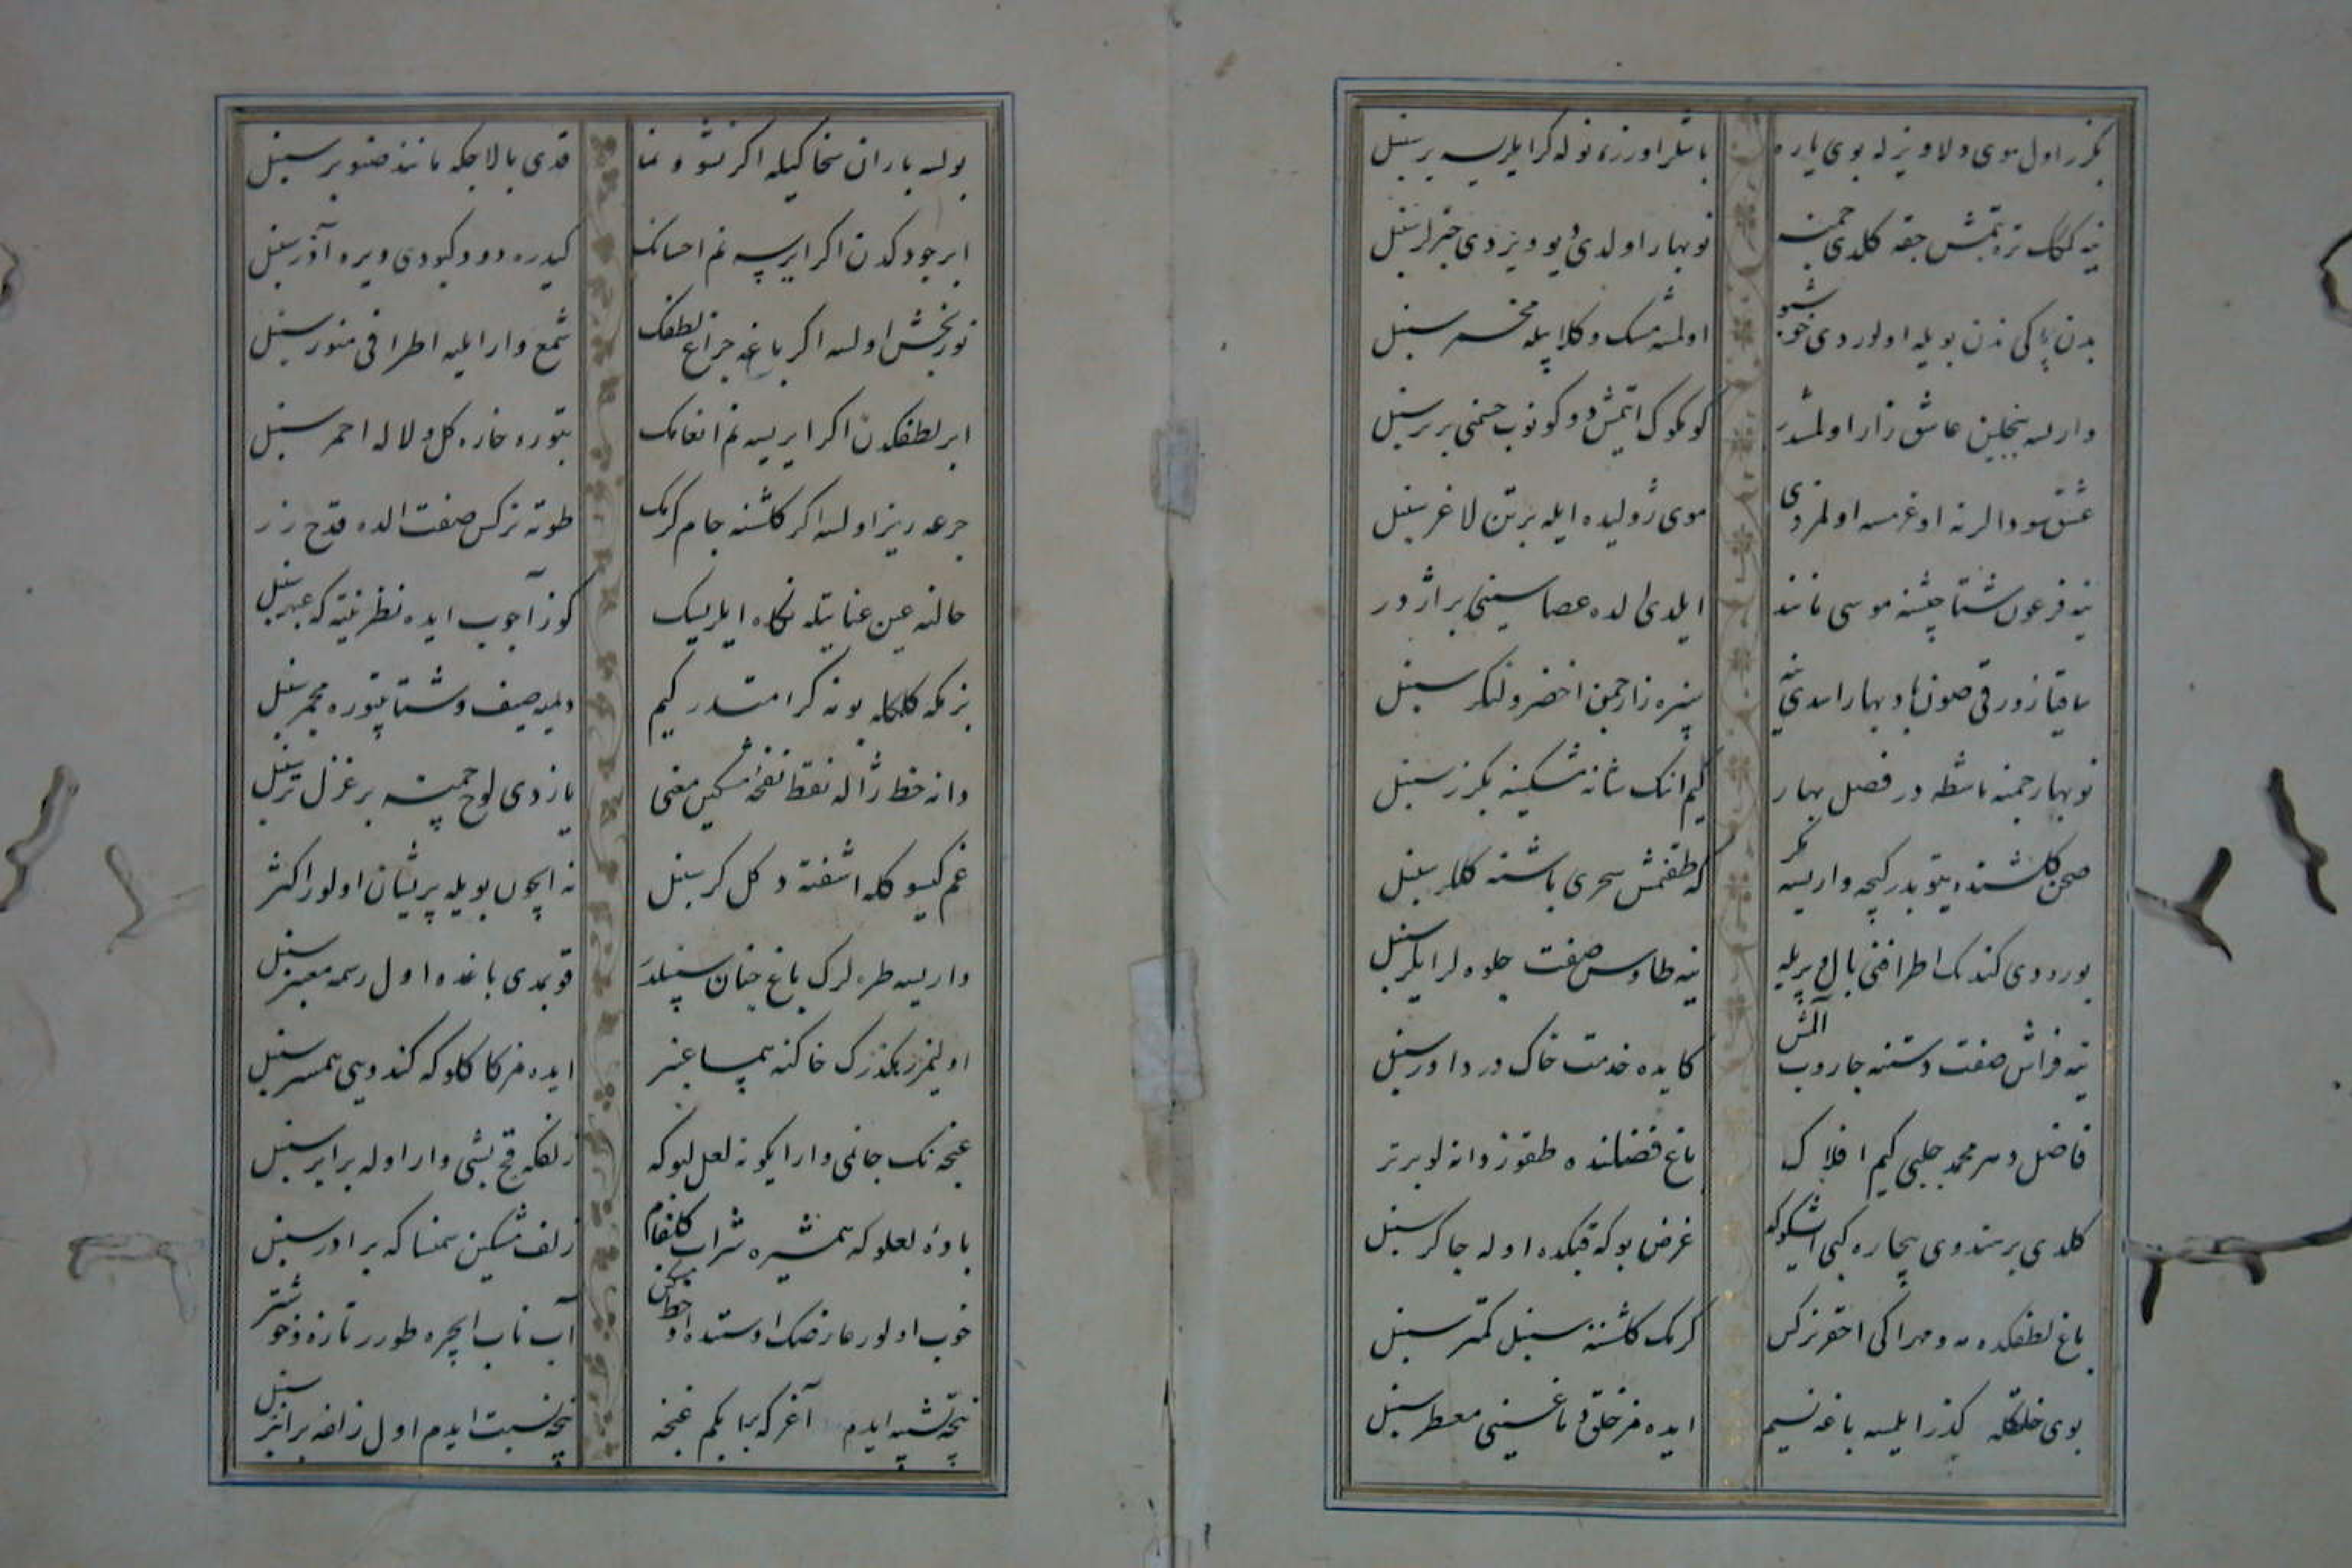 بكزر اول موی دلاویزله بوی یاره باشلر اوزره نوله كر ایلر یسه یر سنبل
ینه كلك تره یتمش جقه كلدی چمنه نوبهار اولدی دیو ویزدی خبرلر سنبل
بدن پاكی ندن بویله اولوردی خوشبو اولمسه مشك و كلابیله مخمر سنبل
وارسه بنجلین عاشق زار اولمشدر كوكوك ایتمش دوكونوب جسمنی یر یر سنبل
عشق سودالرینه اوغرمسه اولمزدی موی ژولیده ایله بر تن لاغر سنبل
ینه فرعون شتا جیشنه موسی مانند ایلدی الده عصاسینی بر اژدر
ساقیا زورقی صون باد بهار اسدی ینه سبزه زار چمن اخضر و لنكر سنبل
نوبهار چمنه ماشطه در فصل بهار كیم انك شانه مشكینه بكزر سنبل
صحن كلشنده یتوبدر كیجه وارسه مكر كه طقنمش سحری باشنه كللر سنبل
بوردی كندنك اطرافنی بال و پریله ینه طاوس صفت جلوه لر ایلر سنبل
ینه فراش صفت دستنه جاروب المش كا ایده خدمت خاك در داور سنبل
فاضل دهر محمد چلبی كیم افلاك باغ فضلنده طقوز دانه لو برتر
كلدی بر هندوی بیچاره كبی اشیكوكه غرض بو كه قپكده اوله چاكر سنبل
باغ لطفكده مه و مهر ایكی احقر نركس كرمك كلشننه سنبل كمتر سنبل
بوی خلقكله كذر ایلسه باغه نسیم ایده مز خلق دماغینی معطر سنبل
بولسه باران سخا كیله اكر نشو و نما قدی بالا چكه مانند صنوبر سنبل
ابر جودكدن اكر ایرسه نم احسانك كیدره دود كبودی ویره آذر سنبل
نوربخش اولسه اكر باغه چراغ لطفك شمع وار ایلیه اطرافی منور سنبل
ابر لطفكدن اكر ایرسه نم انعامك بتوره خاره كل و لاله احمر سنبل
جرعه ریز اولسه اكر كلشنه جام كرمك طوته نركس صفت الده قدح زر
حالنه عین عنایتله نكاه ایلرسك كوز آچوب ایده نظر نیته كه عبهر سنبل
بزمكه كلمكله بو نه كرامتدر كیم دلیه صیف و شتا یتوره مجمر سنبل
دانه خط ژاله نقط نفحه مشكین معنی یازدی لوح چمنه بر غزل تر سنبل
غم كیسو كله اشفته دكل كر سنبل نه ایچون بویله پریشان اولور اكثر
وارسه طره لرك باغ جنان سنبلدر قوبمدی باغده اول رسمه معنبر سنبل
اولیمز رهكذرك خاكنه همپا عنبر ایده مز كاكلوكه كندوی همسر سنبل
غنچه نك جانمی وار ایكونه لعل لبوكه زلفكه قچ بشی وار اوله برابر سنبل
باده لعلوكه همشیره شراب كلفام زلف مشكین سمنسا كه برادر سنبل
خوب اولور عارضك اوستنده او خط مشكین آب ناب ایچره طورر تازه و خوشتر
نیجه تشبیه ایدم آغزكه بر ایكم غنچه نیجه نسبت ایدم اول زلفه برابر سنبل